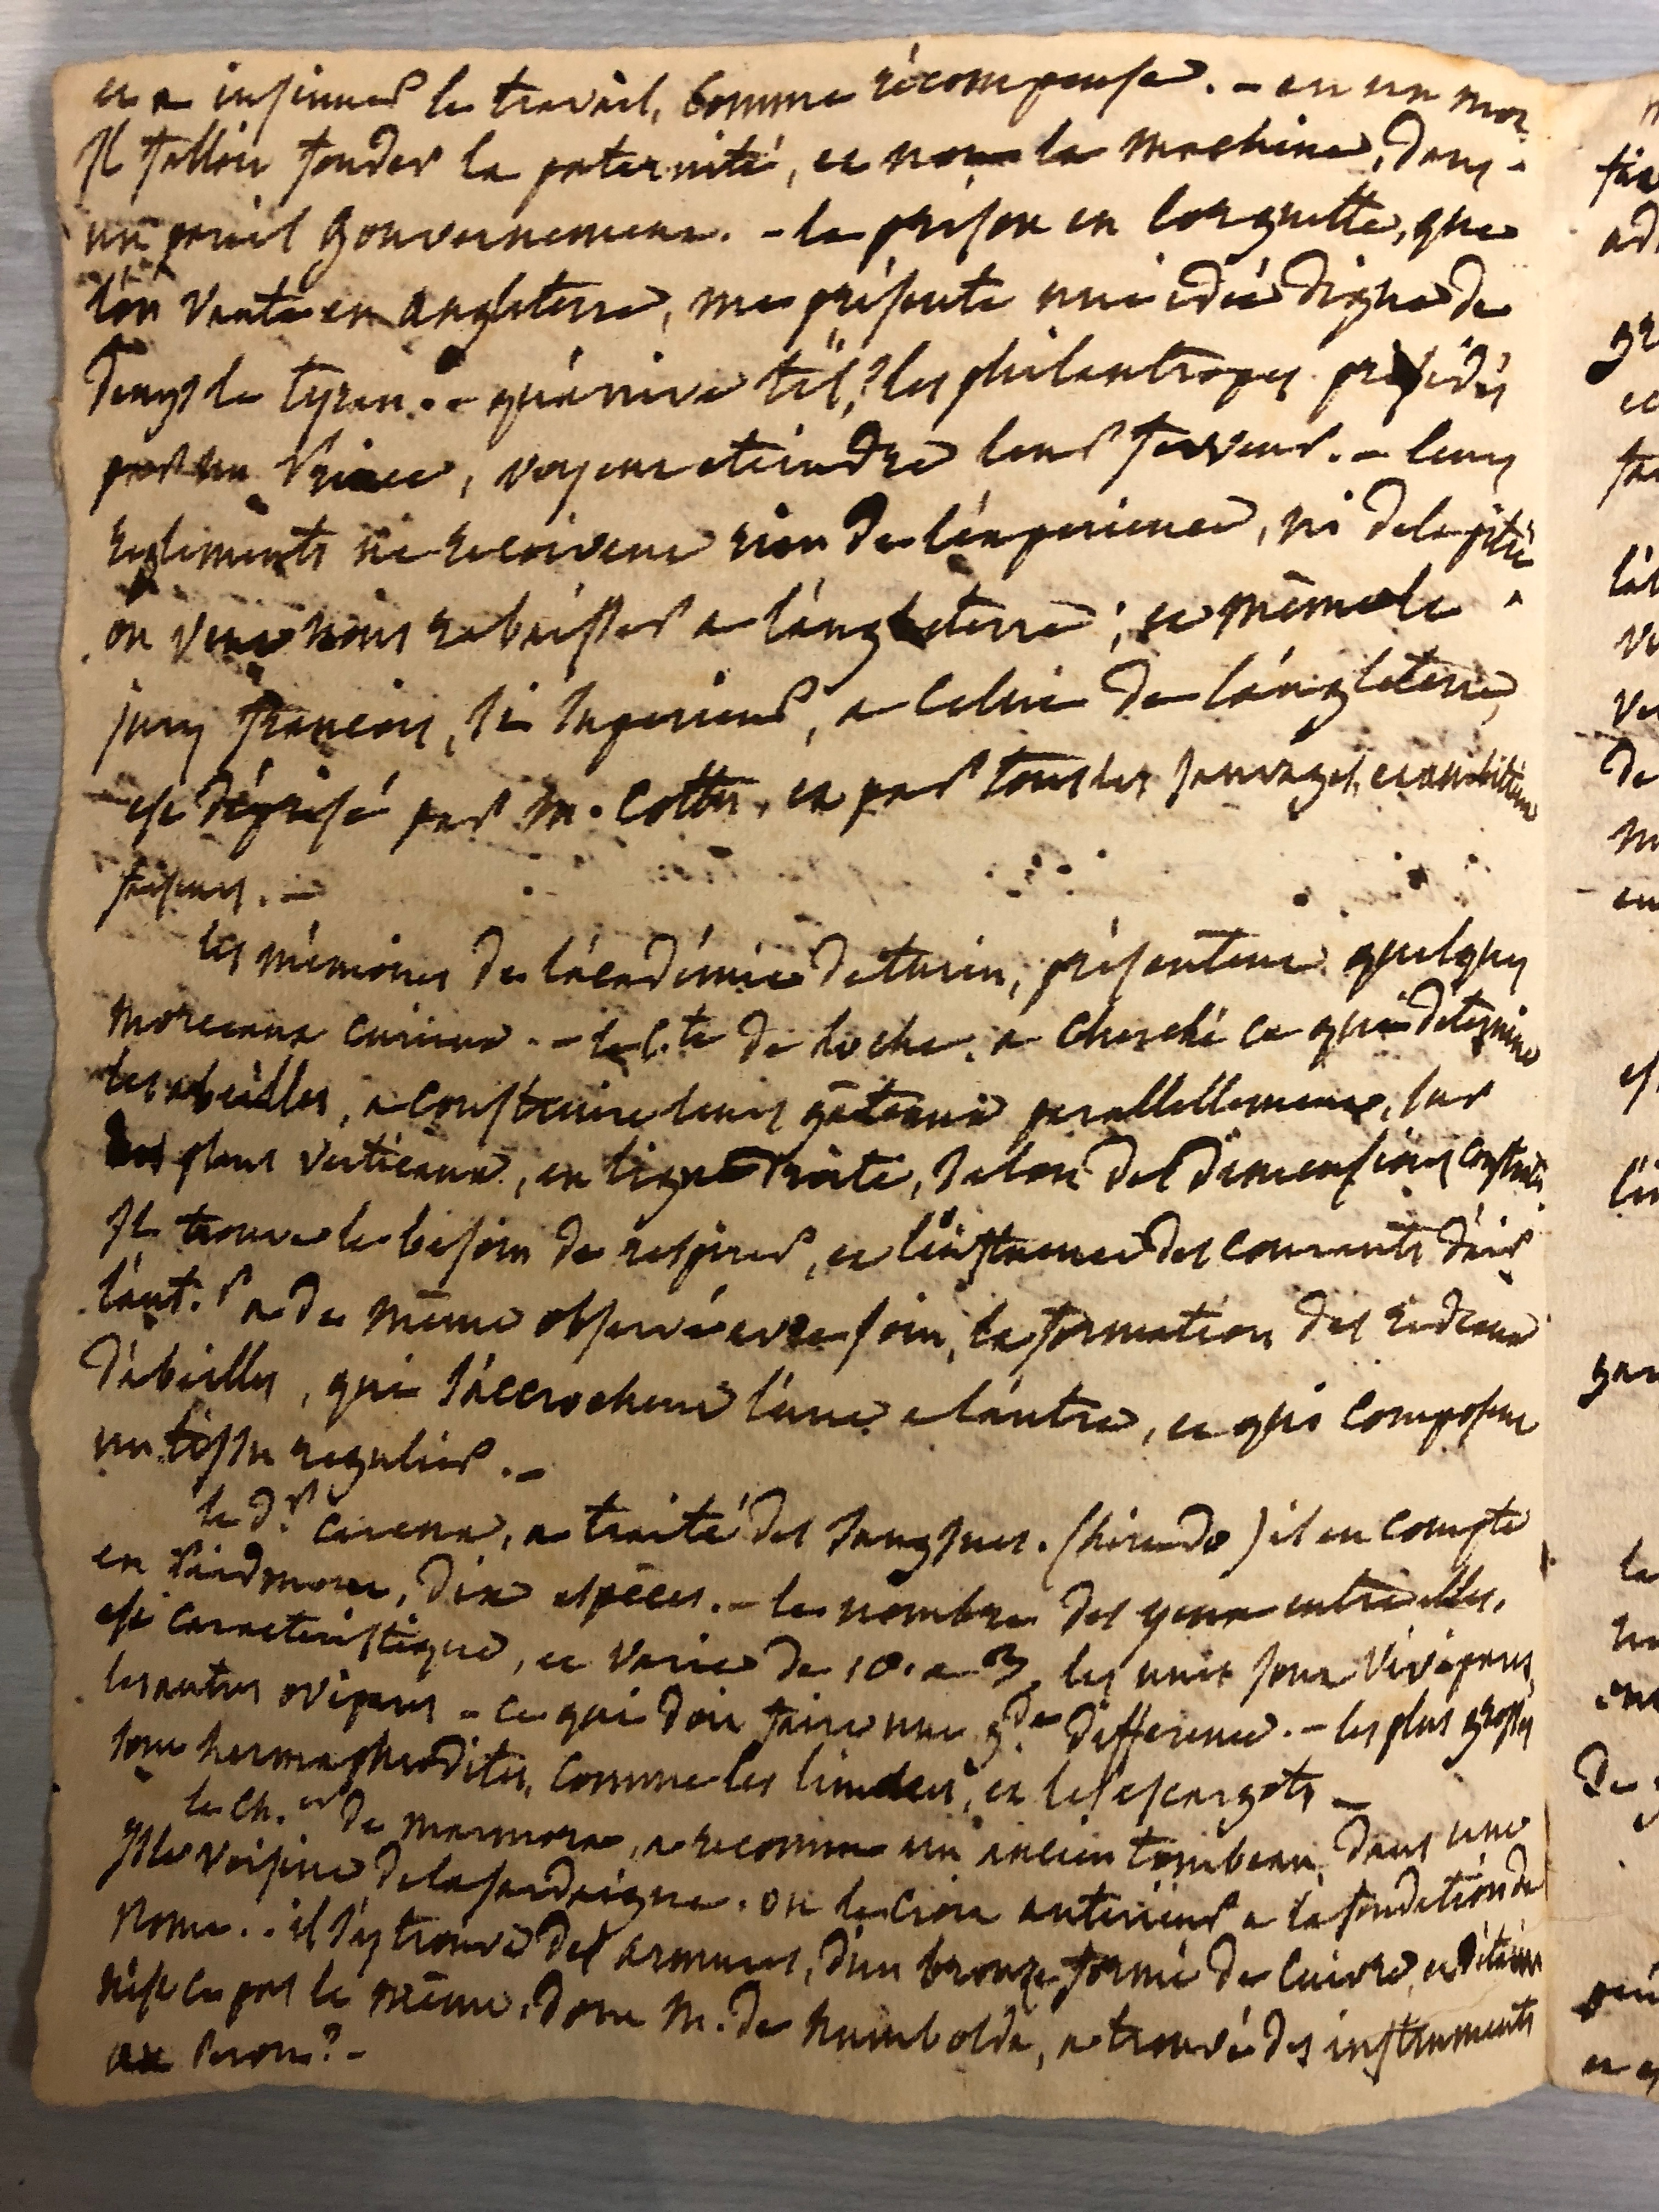 et a insinuer le travail, comme récompense. - en un mot
Il falloit fonder la paternité, et non la machine, dans -
un pareil gouvernement. - la prison en lorgnette, que
l'on vante en angleterre, me présente une idée digne de
denys le tyran. - qu'arrive t'il? les philantropes présidés
par un Prince, voyent eteindre leur ferveur. - leurs
reglements ne recoivent rien de l'experience, ni de la pitié
on veut nous rabaisser a l'angleterre; et même le
jury françois, si superieur, a celui de l'angleterre,
est déprisé par M. Cottu, et par tous les sauvages, et ambitieux
faiseurs. -
les mémoires de l'académie de turin, présentent quelques
morceaux curieux. - le c.te de loche, a cherché ce qui determine
les abeilles, a construire leurs gateaux parallellement, sur
des plans verticaux, en ligne droite, selon des dimensions constantes
Il trouve le besoin de respirer, et l'influence des courants d'air
l'aut.r a de même observé avec soin, la formation des rideaux
d'abeilles, qui s'accrochent l'une a l'autre, et qui composent
un tissu regulier. -
le d.r carena, a traité des sangsues. (hirudo) il en compte
en Piedmont, dix espèces. - le nombre des yeux entre elles,
est caracteristique, et varie de 10. a 2, les unes sont vivipares,
les autres ovipares - ce qui doit faire une g.de difference. - les plus grosses
sont hermaphrodites, comme les limaces, et les escargots -
le ch.er de marmora, a reconnu un ancien tombeau, dans une
Isle voisine de la sardaigne. on le croit anterieur a la fondation de
Rome. . il s'y trouve des armures, d'un bronze formé de cuivre, et d'étain
n'est ce pas le même, dont M. de humboldt, a trouvé des instruments
au Perou? -